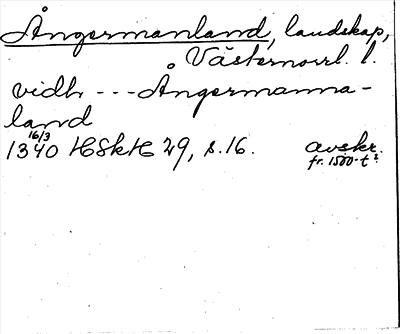 Ångermanland, landskap,
Västernorrl. l.
vidh --- Ångermanna-
land
16/3
1340 HSkH 29, s. 16. avskr.
fr. 1500-t?